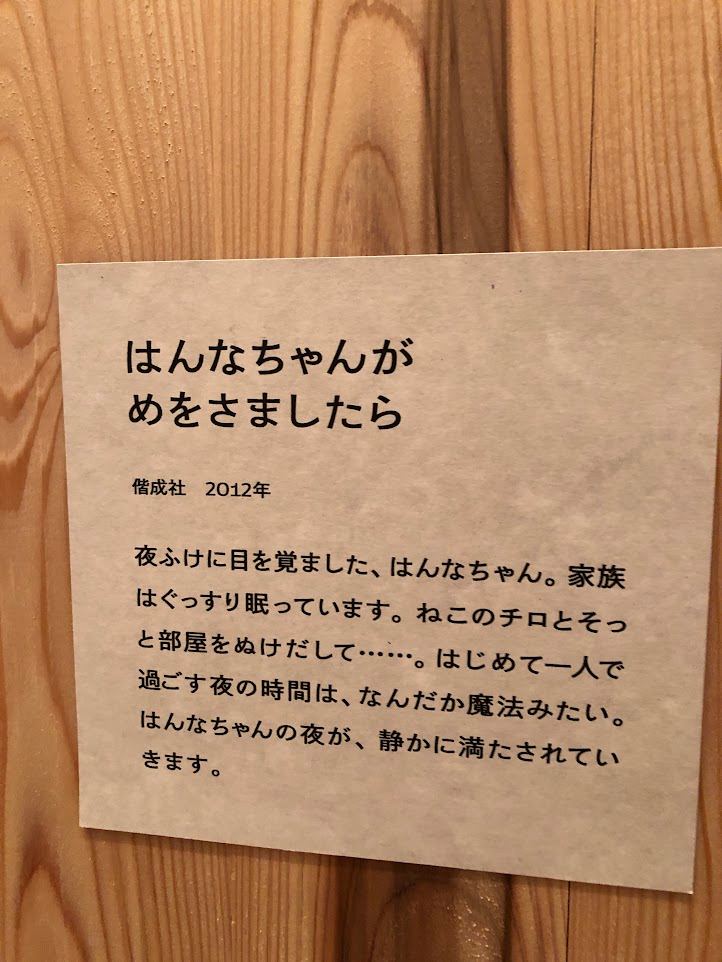 はんなちゃんが
めをさましたら
偕成社　2012年
夜ふけに目を覚ました、はんなちゃん。家族
はぐっすり眠っています。ねこのチロとそっ
と部屋をぬけだして……。はじめて一人で
過ごす夜の時間は、なんだか魔法みたい。
はんなちゃんの夜が、静かに満たされてい
きます。